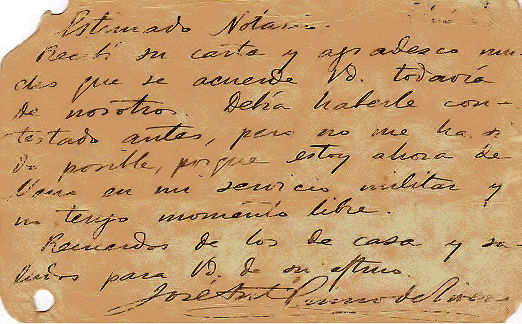 Estimado Notario.
Recibí su carta y agradesco mu-
cho que se acuerde Vd. todavía
de nosotros. Debía haberle con-
testado antes, pero no me ha si
do posible, porque estoy ahora de
lleno en mi servicio militar y
no tengo momento libre.
Recuerdos de los de casa y sa-
ludos para Vd. de su affmo.
José Ant Primo de Rivera